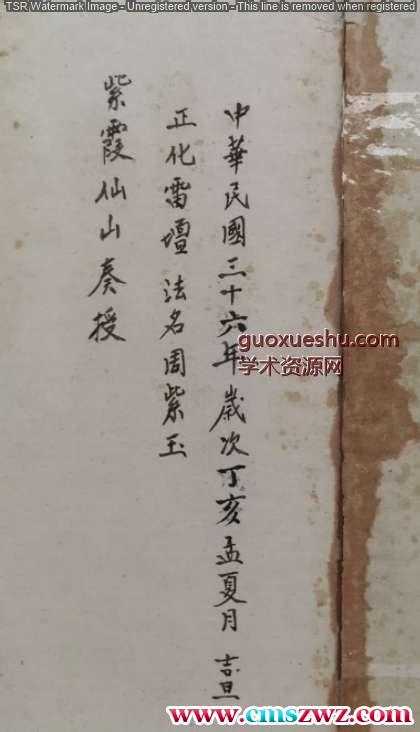 TSR Watermark Image - Unregistered version - This line is removed when registered
中華民國三十六年歲次丁亥孟夏月 吉旦
正化雷壇 法名周紫玉
紫霞仙山奏授
guoxueshu.com
学术资源网
www.cmszwz.com